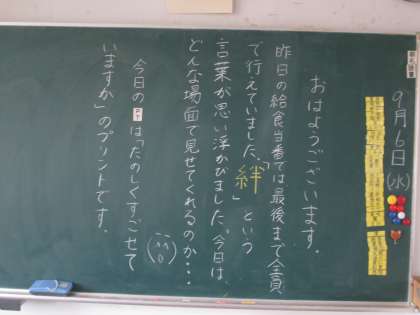 9月6日(水)
おはようございます。
昨日の給食当番では最後まで全員
で行えていました。「絆」という
言葉が思い浮かびました。今日は、
どんな場面で見せてくれるのか・・・
今日のPTは「たのしくすごせて
いますか」のプリントです。